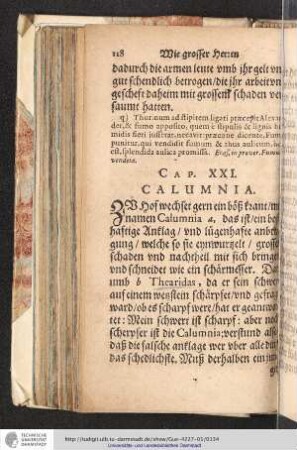 118 Wie grosser Herren
dadurch die armen leute vmb jhr gelt vn
gut schendlich betrogen/die jhr arbeit vn
gescheft daheim mit grossem schaden ver
saumt hatten.
q) Thurinum ad stipitem ligari præcepit Alexan
der, & fumo apposito, quem è stipulis & lignis hu
midis fieri iusserat, necavit: præcone dicente, Fumo
punitur, qui vendidit fumum & thus aulicum, hoc
est, splendida aulica promissa. Fumum
vendere.
CAP. XXI.
CALUMNIA.
ZV Hof wechset gern ein böß kraut/mit
namen Calumnia a, das ist/ein boß
haftige Anklag/ vnd lügenhafte anbrin
gung/ welche so sie eynwurzelt/ grossen
schaden vnd nachtheil mit sich bringet
vnd schneidet wie ein schärmesser. Dar
umb b Thearidas, da er sein schwert
auf einem wetzstein schärpfet/vnd gefragt
ward/ob es scharpf were/hat er geantwor
tet: Mein schwert ist scharpf: aber noch
scherpfer ist die Calumnia: verstund also
daß die falsche anklag wer vber alle ding
das schedlichste. Muß derhalben ein
TECHNISCHE UNIVERSITÄT DARMSTADT
http://tudigit.ulb.tu-darmstadt.de/show/Gue-4227-01/0134
Universitäts- und Landesbibliothek Darmstadt